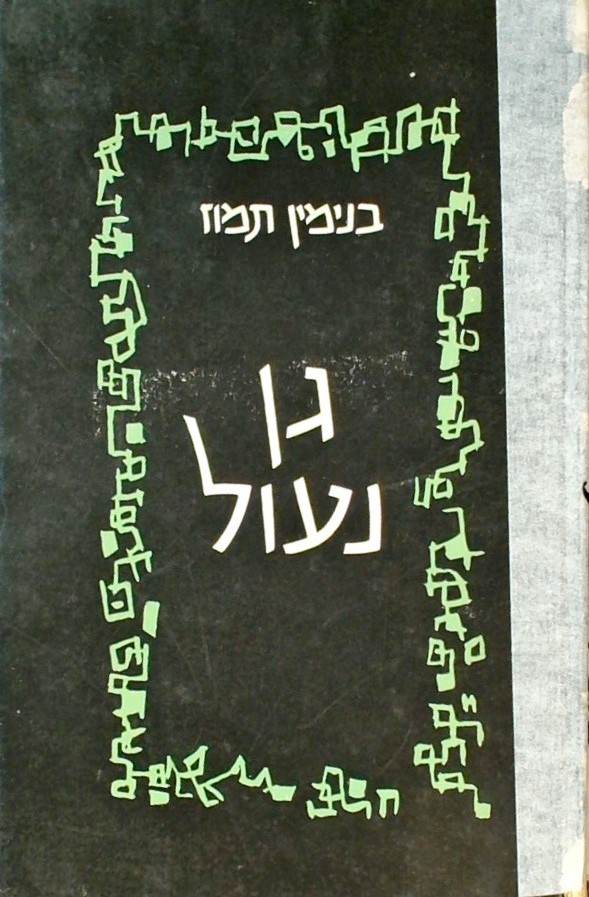 בנימין תמוז
גן
נעול